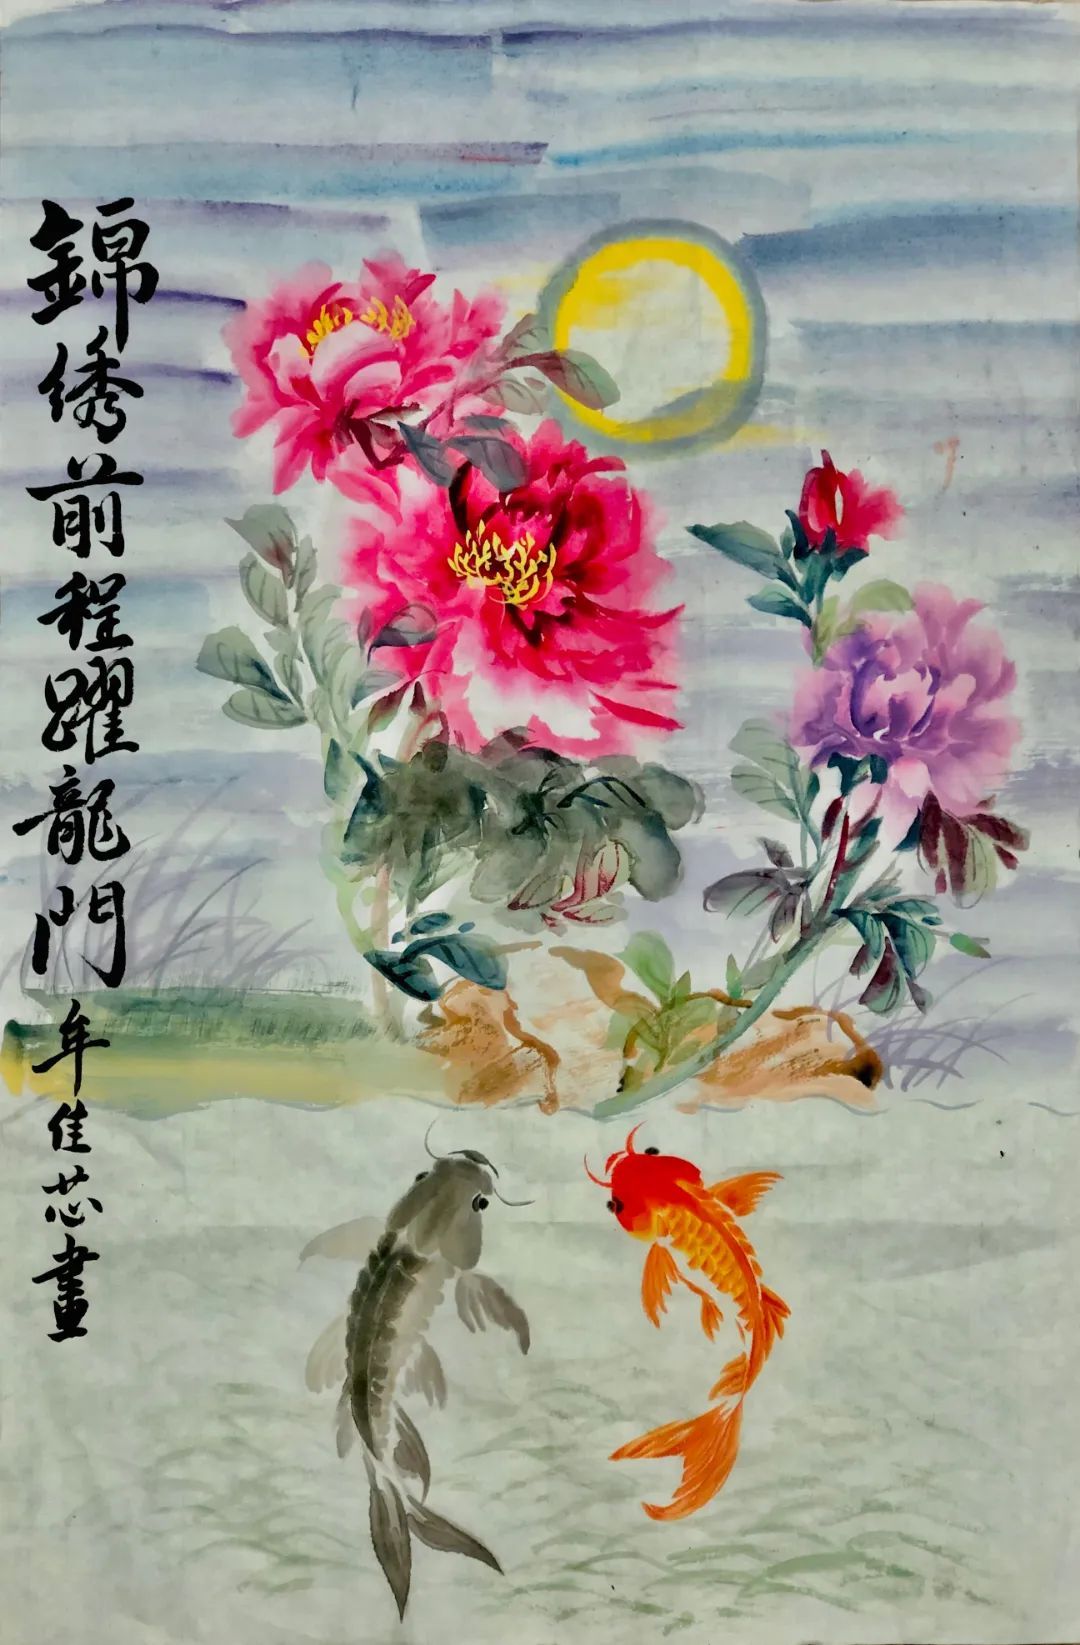 錦绣前程躍龍門 牟佳芯畫